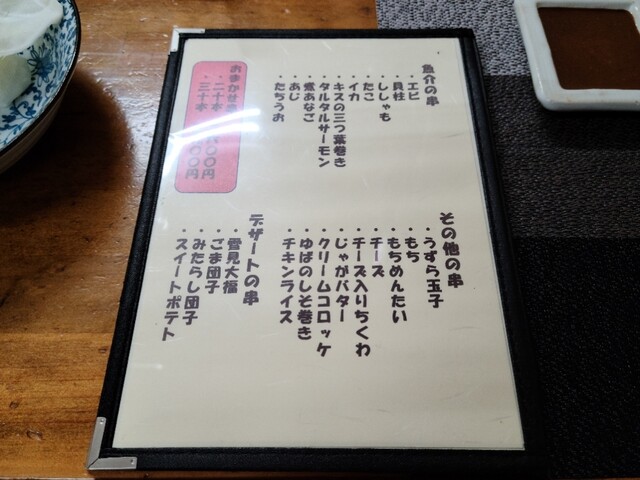 魚介の串
・エビ
・貝柱
・ししゃも
・たこ
・イカ
・キスの三つ葉巻き
・タルタルサーモン
・煮あなご
・あじ
・たちうお
おまかせ
・二十本 〇〇円
・三十本 〇〇円
その他の串
・うずら玉子
・もち
・もちめんたい
・チーズ
・チーズ入りちくわ
・じゃがバター
・クリームコロッケ
・ゆばのしそ巻き
・チキンライス
デザートの串
・雪見大福
・ごま団子
・みたらし団子
・スイートポテト